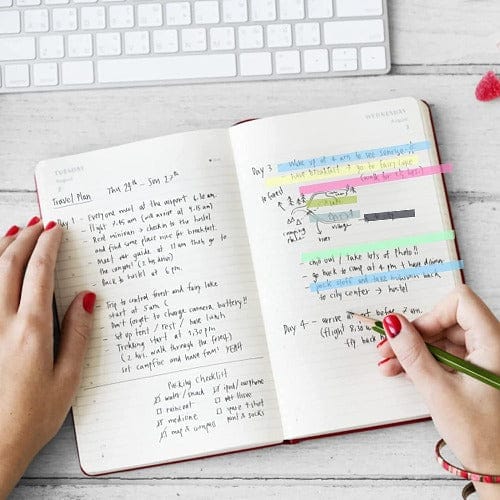 TUESDAY
August
Travel Plan
Day 1 - Everyone meet at the airport 6 am
- flight 7.45 am (will arrive at 9.15 am)
- Rent minivan > check in to the hostel
and find some place nice for breakfast.
- Meet our guide at 11 am then go to
the canyon!
- Back to hostel at 6 pm.
- Trip to central forest and fairy lake
start at 5 am
- Don't forget to change camera battery!!
- Set up tent / rest / have lunch
- Trekking start at 3.30 pm
(2 hrs. walk through the forest)
- set campfire and have fun! YEAH
Packing Checklist
water / snack
ipod / earphone
raincoat
wet tissue
medicine
map & compass
pant & socks
WEDNESDAY
August
Day 3 - Wake up at 4 am to see sunrise
- have breakfast > go to fairy lake
forest
camping
village
river
- chill out / take lots of photo!!
- go back to camp at 4 pm + have dinner
- pack stuff and take minivan
to city center > hostel
Day 4 - arrive
(flight 8.30
fly back